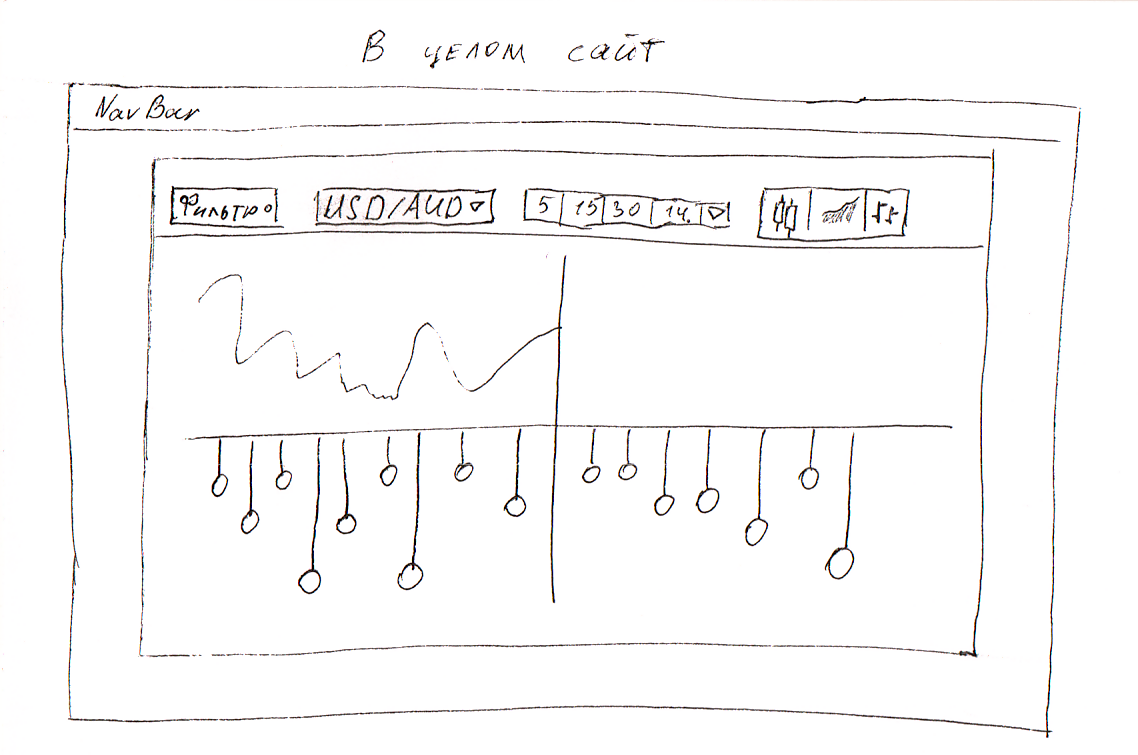 В целом сайт
NavBar
Фильтр USD/AUD 5 15 30 1ч.